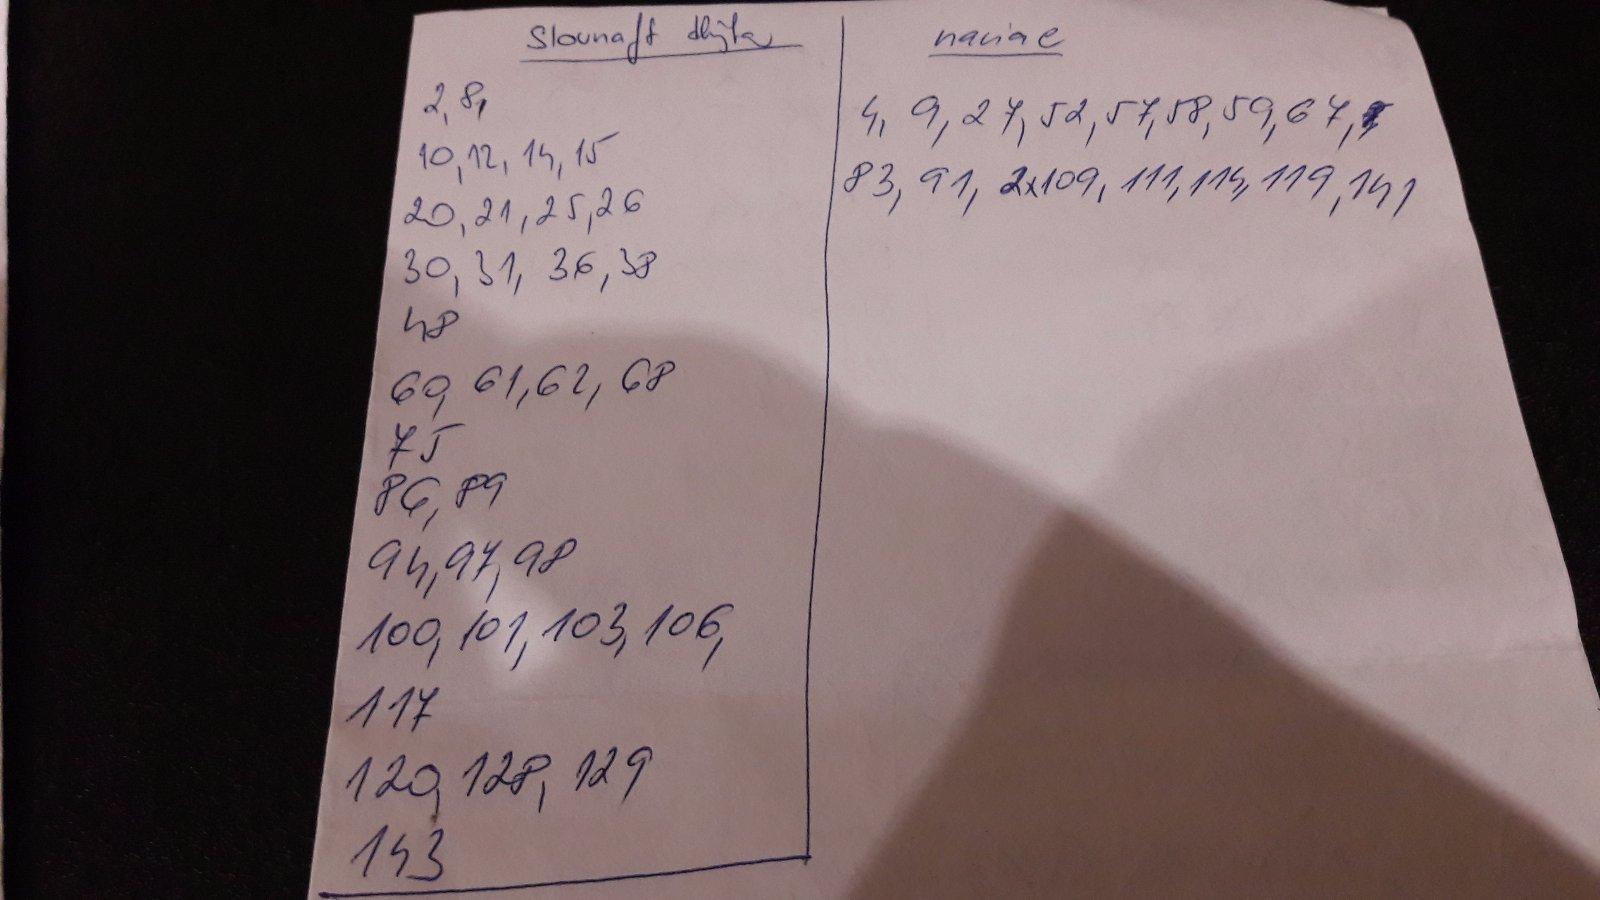 Slovnaft chýba
2, 8,
10, 12, 14, 15
20, 21, 25, 26
30, 31, 36, 38
48
60, 61, 62, 68
75
86, 89
94, 97, 98
100, 101, 103, 106,
117
120, 128, 129
143
naviac
4, 9, 27, 52, 57, 58, 59, 67,
83, 91, 2x109, 111, 114, 119, 141